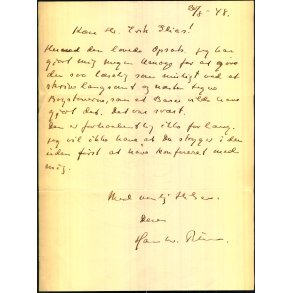 20/8-48.
Kære Hr. Erik Elias!
Hermed den lovede Opsats. Jeg har
gjort mig megen Umage for at gøre
den saa læselig som muligt ved at
skrive langsomt og næsten tegne
Bogstaverne, som et Barn vilde have
gjort det. Det var svært.
Den er forhaabentlig ikke for lang.
Jeg vil ikke have at De stryger i den
uden først at have konfereret med
mig.
Med venlig Hilsen
Deres